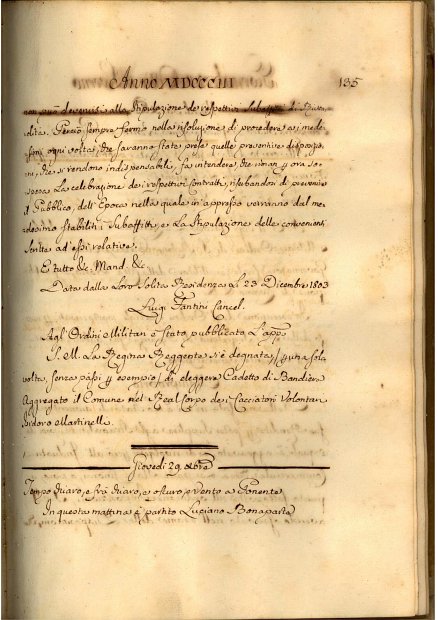 Anno MDCCCIII 135
non può devenirsi alla Stipulazione de respettivi Subaffitti di
dità. Perciò sempre fermo nella risoluzione di procedere ai mede-
simi ogni volta, che saranno state prese quelle preventive disposizio-
ni, che si rendono indispensabili, fa intendere, che riman p ora so-
spesa La celebrazione dei respettivi Contratti, riserbandosi di prevenire
il Pubblico, dell'Epoca nella quale in appresso verranno dal me-
desimo stabiliti i Subaffitti, e La Stipulazione delle convenienti
Scritte ad essi relative.
E tutto &c. Mand. &c.
Data dalla Loro Solita Residenza Li 23 Dicembre 1803
Luigi Fantini Cancel.
Agl'Ordini Militari è stato pubblicato L'app.
S. M. La Regina Reggente s'è degnata, p una sola
volta, senza passi p esempio, di eleggere Cadetto di Bandiera
Aggregato il Comune nel Real Corpo dei Cacciatori Volontari
Isidoro Martinelli
Giovedì 29. Xbre
Tempo chiaro, e frà chiaro, e oscuro p Vento a Ponente
In questa mattina è partito Luciano Bonaparte